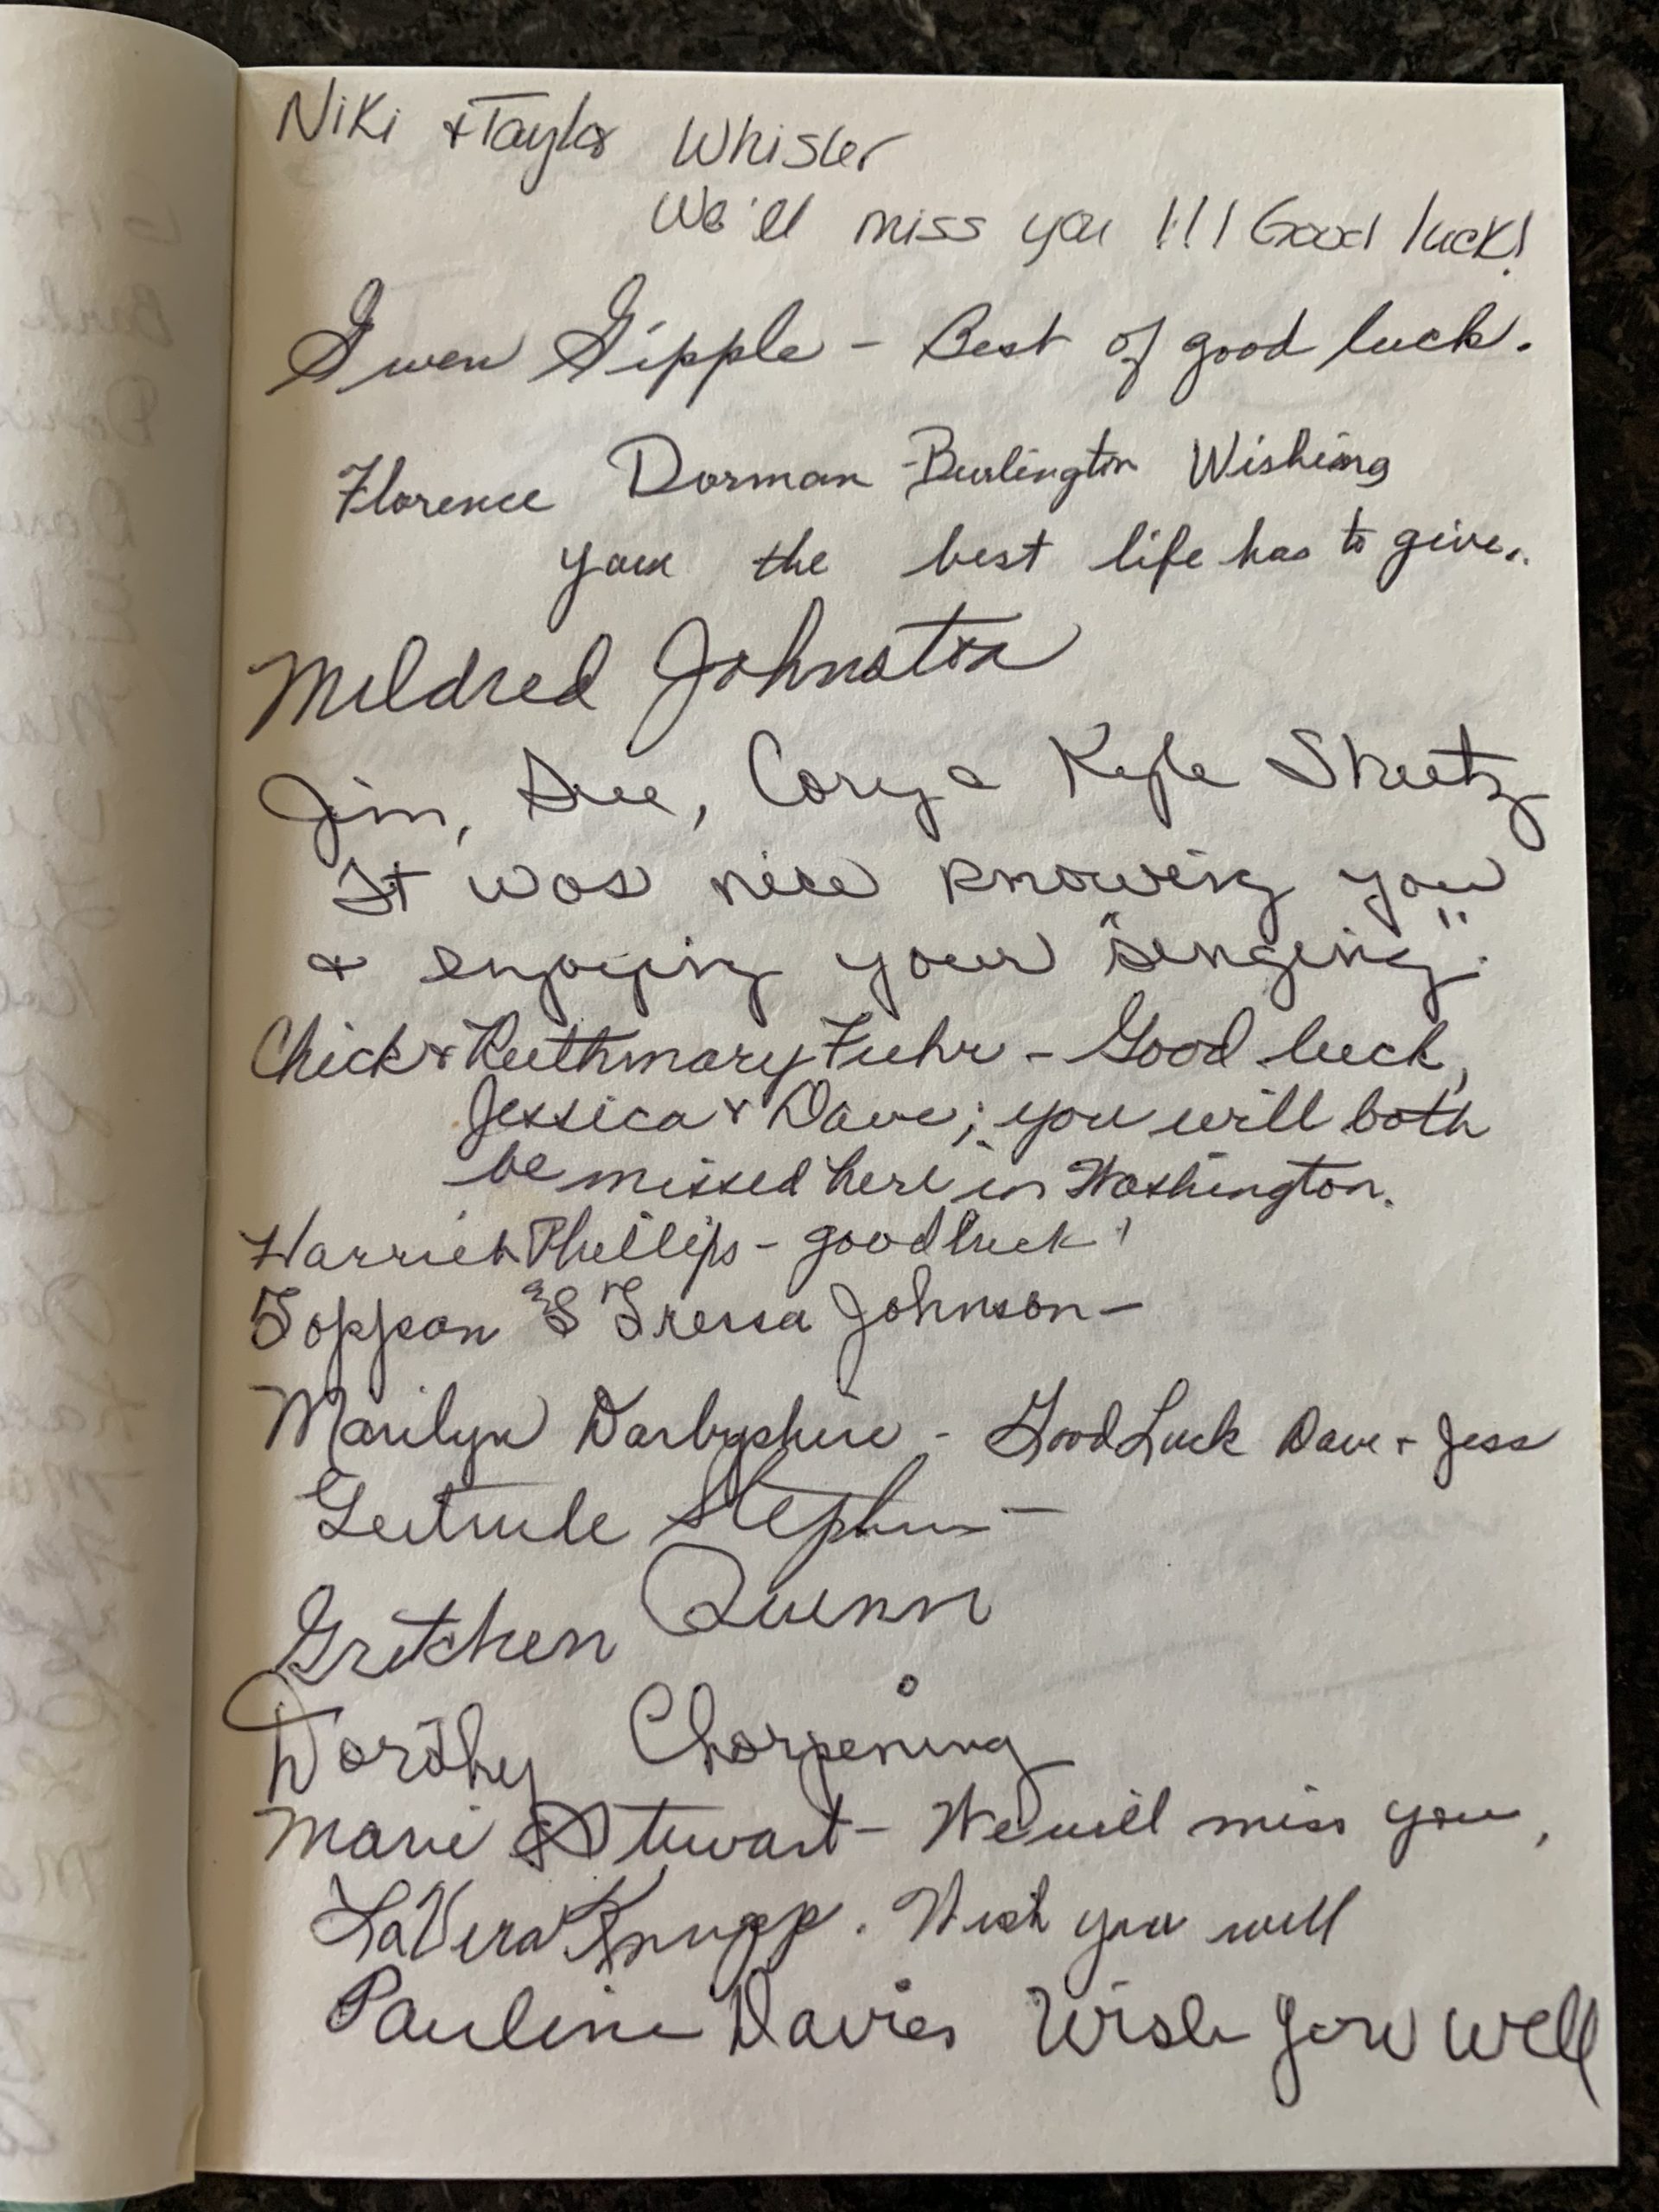 Niki & Taylor Whisler
We'll miss you !!! Good luck!
Gwen Gipple - Best of good luck.
Florence Dorman - Burlington Wishing
you the best life has to give..
Mildred Johnston
Jim, Sue, Cory & Kyle Sheetz
It was nice knowing you
& enjoying your "singing".
Chick & Ruthmary Fuhr - Good luck,
Jessica & Dave; you will both
be missed here in Washington.
Harriet Phillips - good luck!
Toppan & Tressa Johnson -
Marilyn Darbyshire - Good Luck Dave & Jess
Gertrude Stephens -
Gretchen Quinn
Dorothy Chorpening
Marie Stewart - We will miss you,
LaVera Knupp. Wish you well
Pauline Davies Wish you well